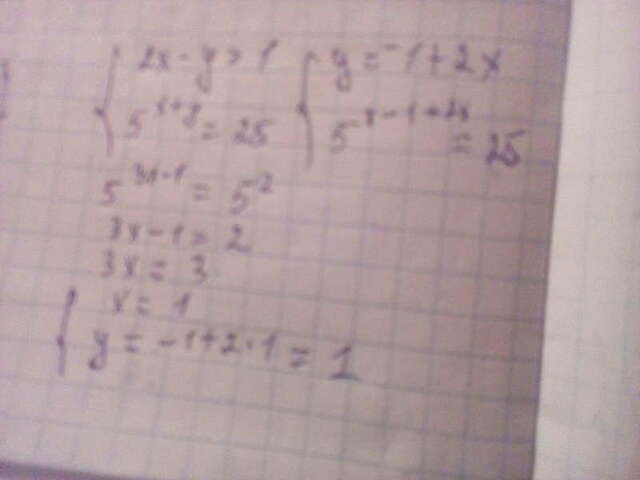 2x - y = 1 y = -1 + 2x
5^{x+y} = 25 5^{x-1+2x} = 25
5^{3x-1} = 5^2
3x - 1 = 2
3x = 3
x = 1
y = -1 + 2 · 1 = 1